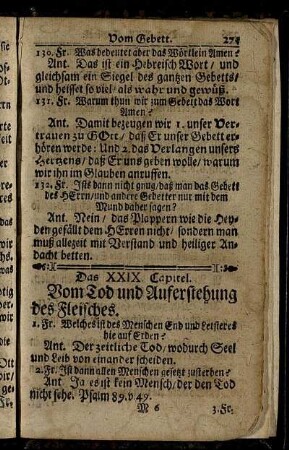 Vom Gebett. 275
130. Fr. Was bedeutet aber das Wörtlein Amen?
Ant. Das ist ein Hebreisch Wort / und
gleichsam ein Siegel des gantzen Gebetts/
und heisset so viel / als wahr und gewüß.
131. Fr. Warum thun wir zum Gebett das Wort
Amen?
Ant. Damit bezeugen wir 1. unser Ver-
trauen zu GOtt / daß Er unser Gebett er-
hören werde: Und 2. das Verlangen unsers
Hertzens / daß Er uns geben wolle / warum
wir ihn im Glauben anruffen.
132. Fr. Ists dann nicht gnug / daß man das Gebett
des HErrn / und andere Gebetter nur mit dem
Mund daher sagen?
Ant. Nein / das Plappern wie die Hey-
den gefällt dem HErren nicht / sondern man
muß allezeit mit Verstand und heiliger An-
dacht betten.
Das XXIX Capitel.
Vom Tod und Auferstehung
des Fleisches.
1. Fr. Welches ist des Menschen End und Letsteres
hie auf Erden?
Ant. Der zeitliche Tod / wodurch Seel
und Leib von einander scheiden.
2. Fr. Ist dann allen Menschen gesetzt zusterben?
Ant. Ja es ist kein Mensch / der den Tod
nicht sehe. Psalm 89. v 49.
M 6 3. Fr.